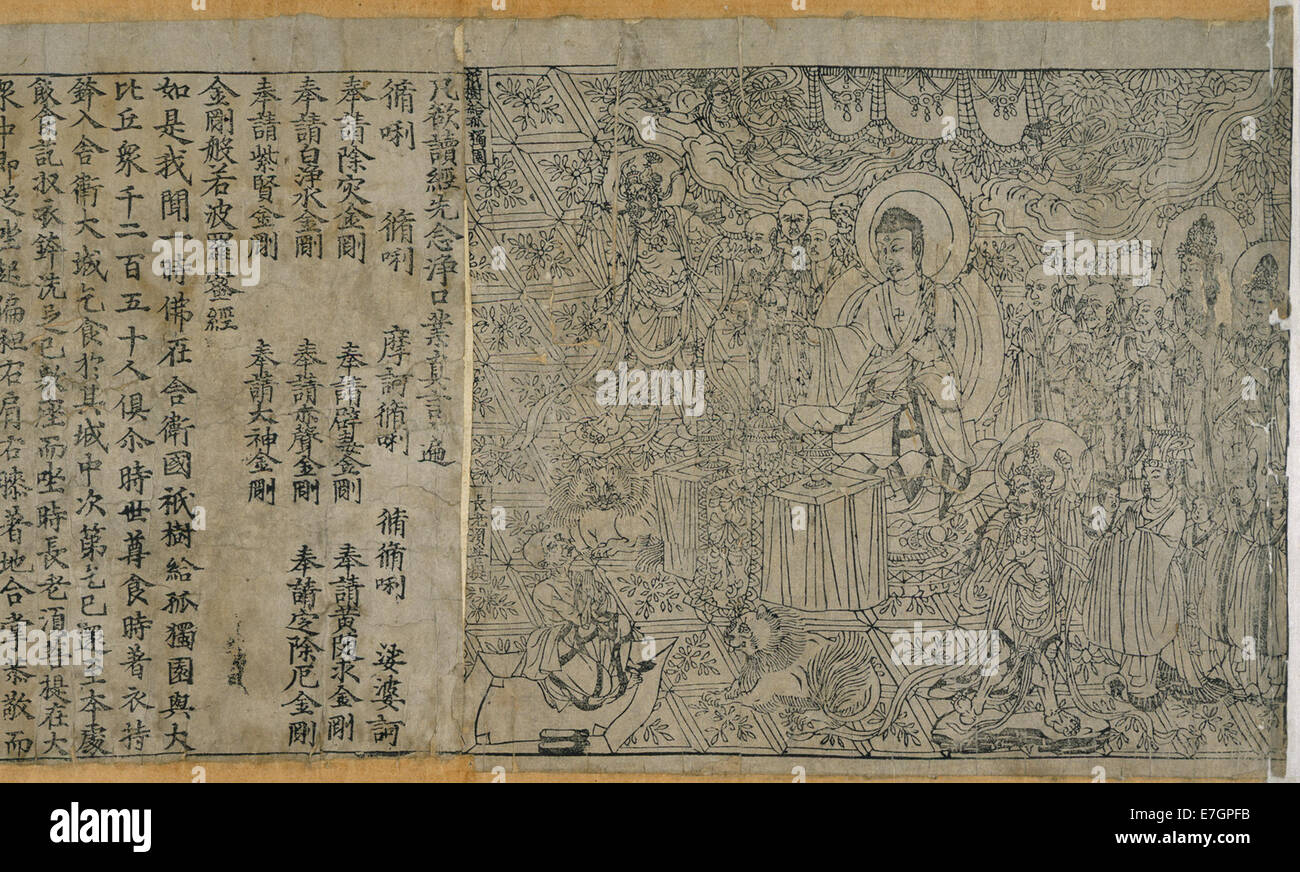 祇樹給孤獨園
長老須菩提
凡欲讀經先念淨口業真言遍
脩唎 脩唎 摩訶脩唎 脩脩唎 娑婆訶
奉請除灾金剛 奉請辟毒金剛 奉請黄隨求金剛
奉請白淨水金剛 奉請赤聲金剛 奉請定除厄金剛
奉請紫賢金剛 奉請大神金剛
金剛般若波羅蜜經
如是我聞一時佛在舍衛國祇樹給孤獨園與大
比丘衆千二百五十人俱尒時世尊食時著衣持
鉢入舍衛大城乞食於其城中次第乞已還至本處
飯食訖收衣鉢洗足已敷座而坐時長老須菩提在大
衆中即從坐起偏袒右肩右膝著地合掌恭敬而
alamy
alamy
alamy stock photo
E7GPFB
www.alamy.com